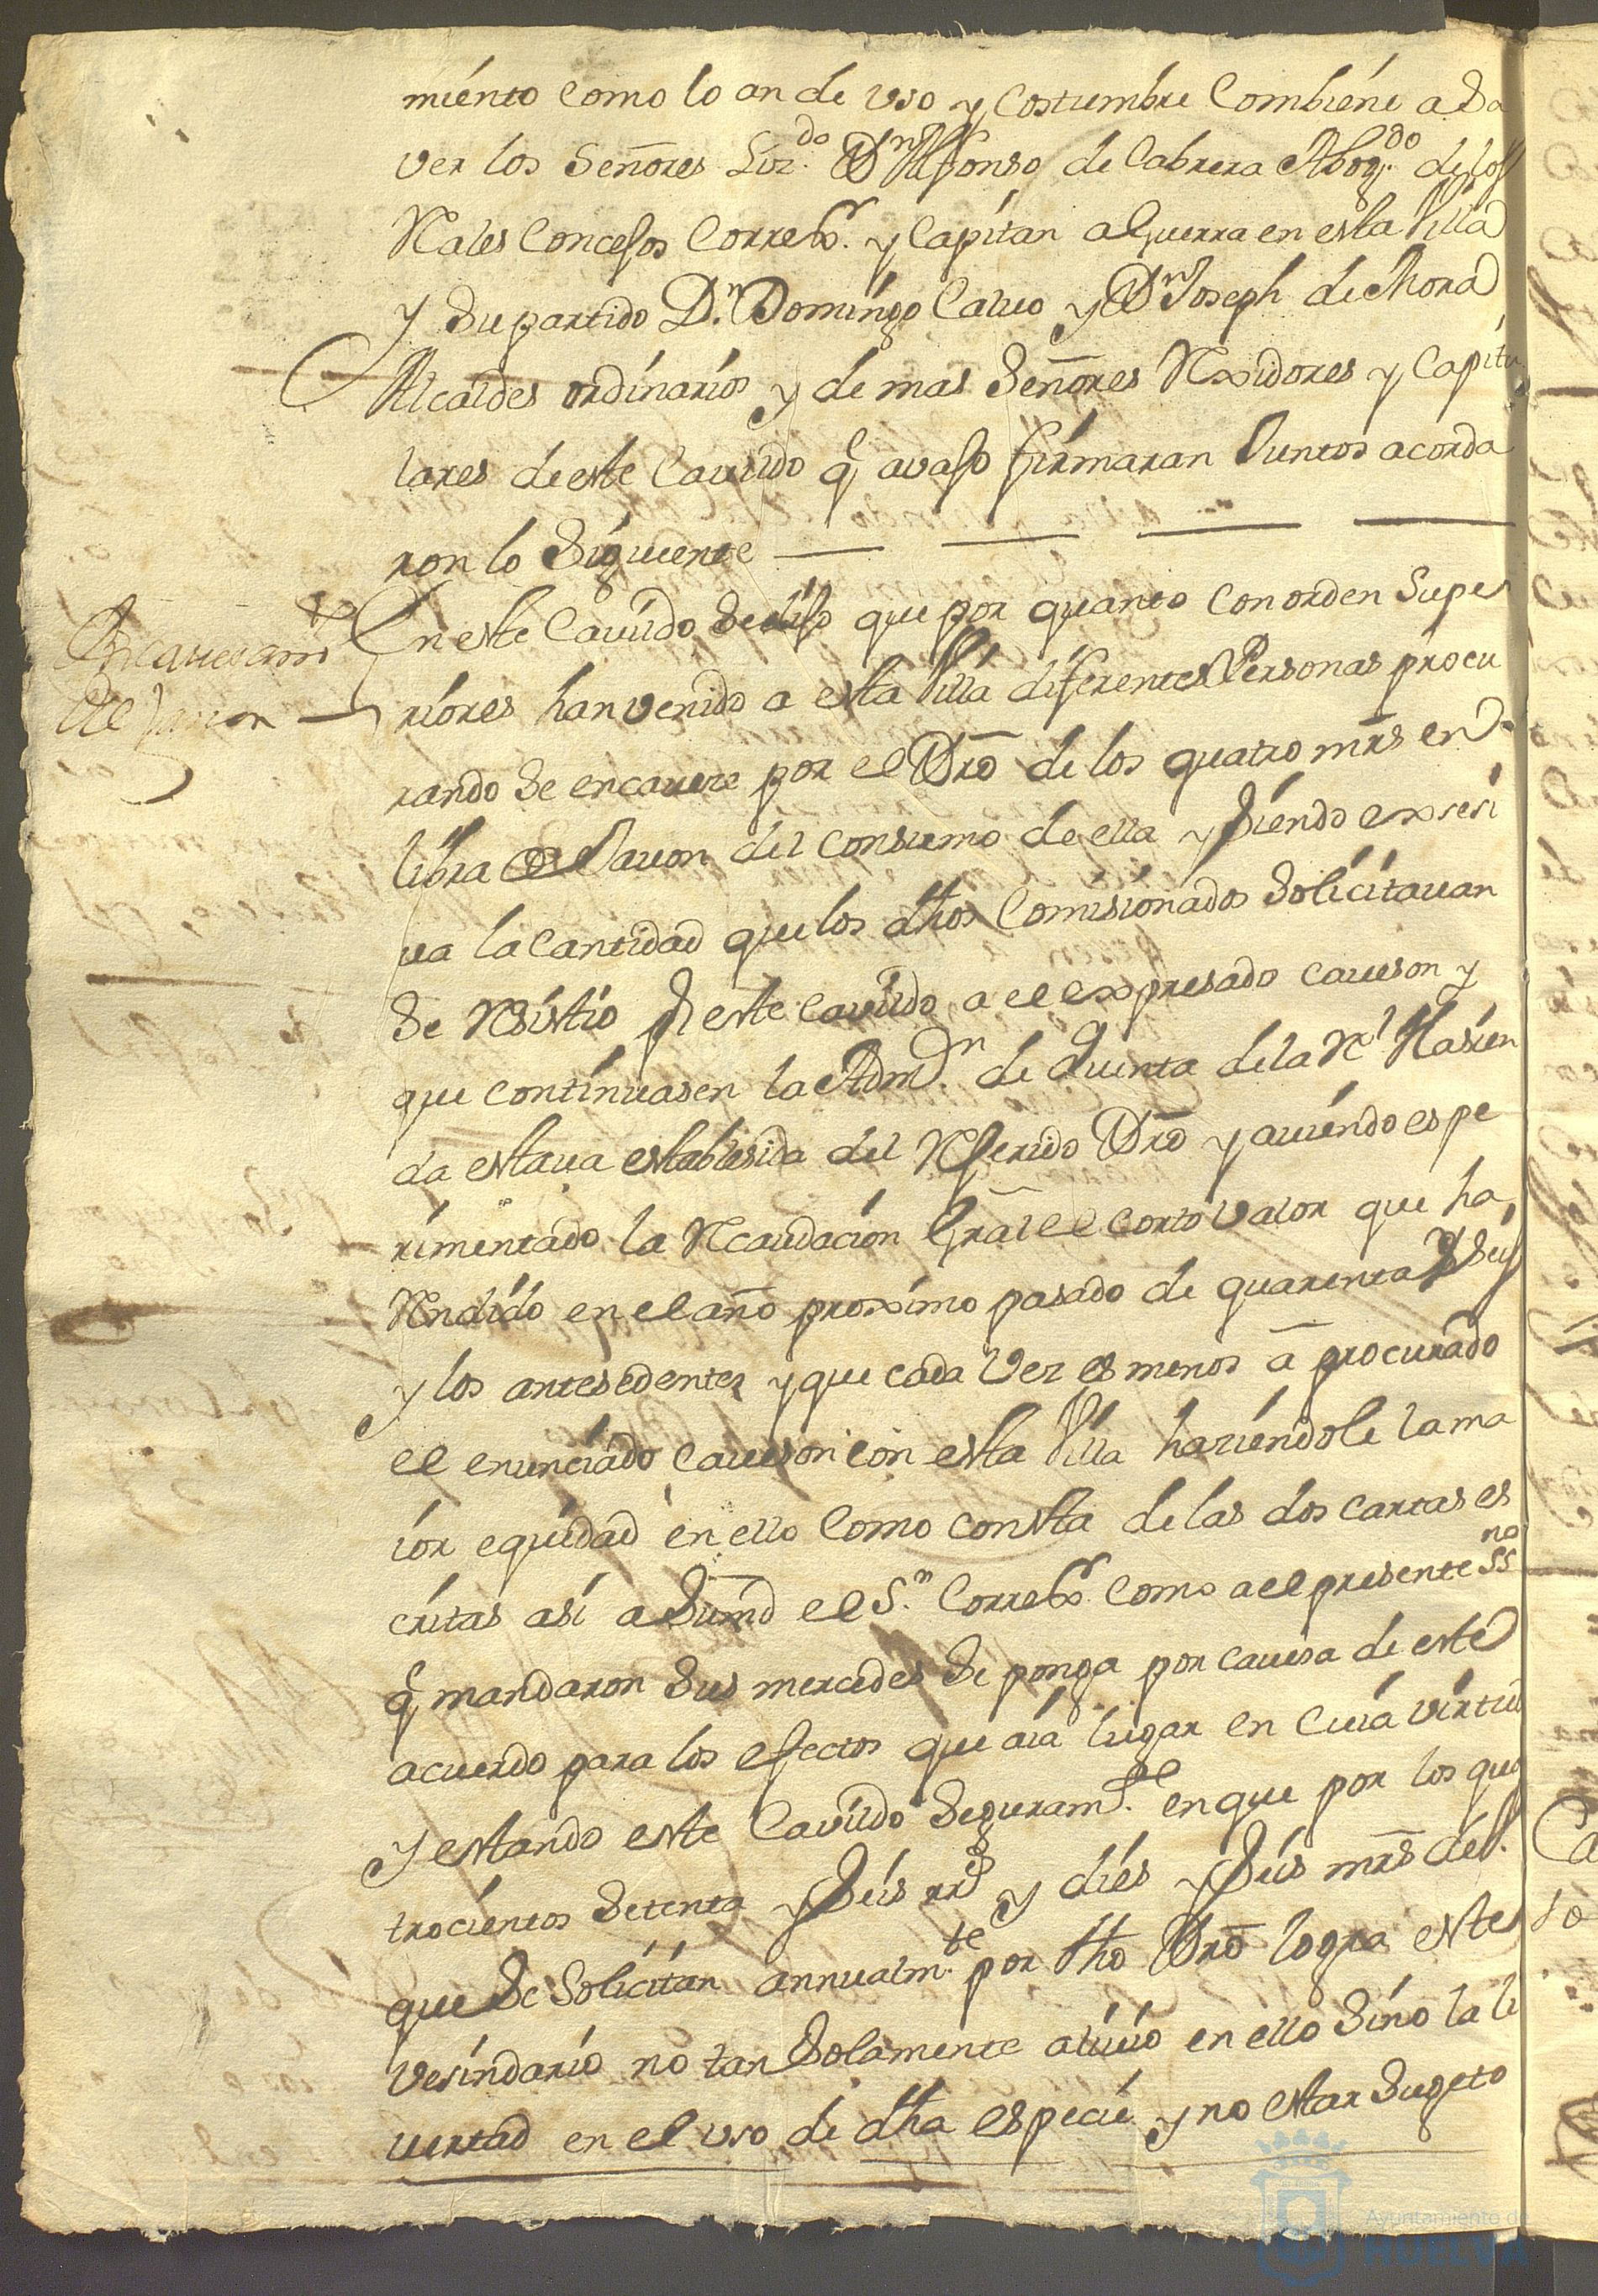 miento como lo an de uso y costumbre combiene a sa
ver los Señores Liz.do Dn Alfonso de Cabrera Abog.do de los
Rales Concesos Correxr. y Capitan a Guerra en esta Villa
y su partido D.n Domingo Calvo y Dn Joseph de Mora
Alcaldes ordinarios y de mas Señores Rexidores y Capitu
lares de este Cavildo q avaso firmaran Juntos acorda
ron lo siguiente
Encavesamto
del Javon
En este Cavildo se diso que por quanto con orden Supe
riores han venido a esta Villa diferentes Personas procu
rando se encaveze por el Dro de los quatro mrs en
libra de Javon del consumo de ella y siendo exsesi
va la cantidad que los dhos Comisionados solicitavan
se Resistio por este Cavildo a el expresado caveson y
que continuasen la Adm.n de quenta de la Rl Hasien
da estava establesida del Referido Dro y aviendo espe
rimentado la Recaudacion Gral el corto valor que ha
Rendido en el año proximo pasado de quarenta y seis
y los antesedentes y que cada vez es menos a procurado
el enunciado Caveson con esta Villa haziendole la ma
ior equidad en ello como consta de las dos cartas es
critas asi a sumd el S.r Correxr. como a el presente ssno
q mandaron sus mercedes se ponga por cavesa de este
acuerdo para los efectos que aia lugar en cuia virtud
y estando este Cavildo seguram.te en que por los qua
trocientos setenta y seis rrs y dies y seis mrs de v.
que se solicitan annualm.te por dho Dro logra este
vesindario no tan solamente alivio en ello sino la li
vertad en el uso de dha especie y no estar sugeto
Ayuntamiento de
HUELVA